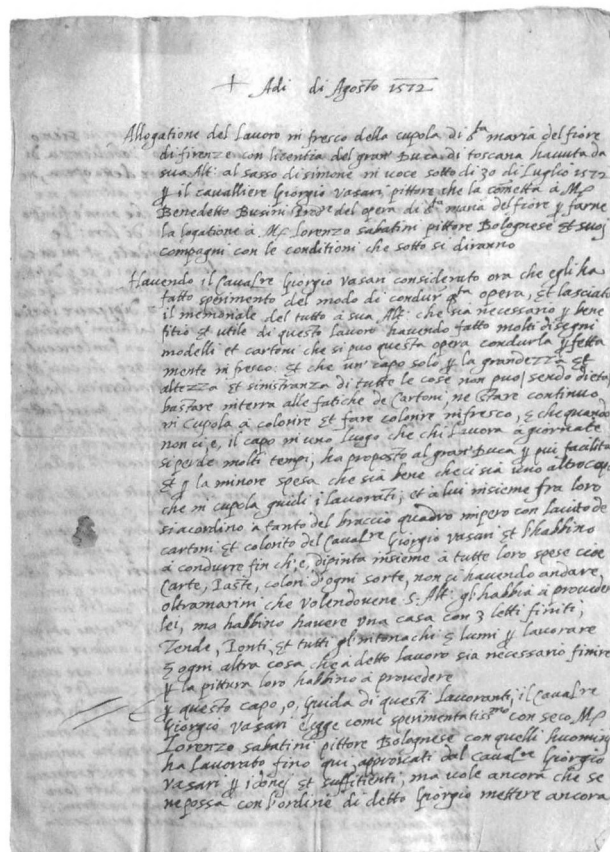 + Adi di Agosto 1572
Allogatione del Lavoro in fresco della cupola di S.ta maria del fiore
di firenze con licentia del gran Duca di toscana havuta da
sua Alt: al sasso di simone in voce sotto di 30 di Luglio 1572
p il cavalliere Giorgio vasari pittore che la cometta à Mr
Benedetto Busini Prove.re del opera di S.ta maria del fiore p farne
la logatione à Mr Lorenzo sabatini pittore Bolognese et suoj
compagni con le conditioni che sotto si diranno
Havendo il Caval.re Giorgio vasari considerato ora che egli ha
fatto sperimento del modo di condur q.sta opera, et lasciato
il memoriale del tutto à sua Alt: che sia necessario p bene
fitio et utile di questo lavoro havendo fatto molti disegni
modelli et cartoni che si puo questa opera condurla pfetta
mente in fresco: et che un' capo solo p la grandezza et
altezza et di tutte le cose non puo, sendo
bastare in terra alle fatiche de Cartoni, ne stare continuo
in Cupola à colorire et fare colorire in fresco, e che quando
non ci, e, il capo in uno luogo che chi Lavora à giornate
si perde molti tempi, ha proposto al gran' Duca p piu facilita
et p la minore spesa che sia bene che ci sia uno altro capo
che in cupola guidi i lavorati, et à lui insieme fra loro
si acordino à tanto del braccio quadro con de
cartoni et colorito del Caval.re Giorgio vasari et l'habbino
à condurre fin ch'e, dipinta insieme à tutte loro spese cioe
Carte, Paste, colori d'ogni sorte, non ci havendo andare,
oltramarin che volendovene S. Alt: gl'habbia à proveder
lei, ma habbino havere una casa con 3 letti finiti,
Tende, Ponti, et tutti gl'intonachi e lumi p lavorare
e ogni altra cosa che à detto lavoro sia necessario finire
p la pittura loro habbino à provedere
p questo capo, o, Guida di questi Lavoranti, il Caval.re
Giorgio vasari elegge come sperimentatis.mo con seco Mr
Lorenzo sabatini pittore Bolognese con quelli huomini
ha Lavorato fino qui, aprovati dal Caval.re Giorgio
vasari p idonej et suffitienti, ma vole ancora che se
ne possa con l'ordine di detto Giorgio mettere ancora